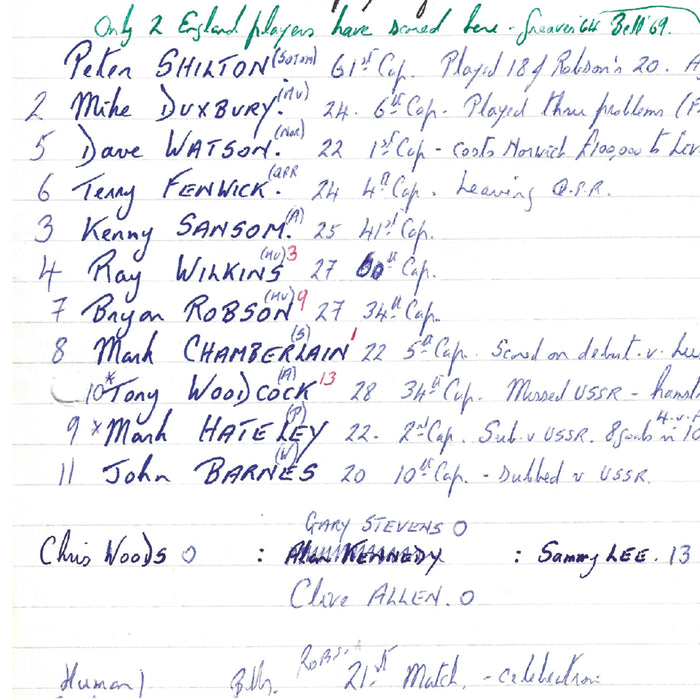 Only 2 England players have scored here - Greaves '64 Bell '69.
Peter SHILTON (SOTON) 61st Cap. Played 18 of Robson's 20.
2 Mike DUXBURY. (MU) 24. 6th Cap - Played three problems
5 Dave WATSON. (Nor) 22 1st Cap - costs Norwich £100,000 to Liv
6 Terry FENWICK. (QPR 24 4th Cap. Leaving Q.P.R.
3 Kenny SANSOM. (A) 25 41st Cap.
4 Ray WILKINS (MU) 3 27 60th Cap.
7 Bryan ROBSON (MU) 9 27 34th Cap.
8 Mark CHAMBERLAIN (S) 1 22 5th Cap. Scored on debut. v. Lux
10* Tony WOODCOCK (A) 13 28 34th Cap. Missed USSR - hamst
9 * Mark HATELEY (P) 22. 2nd Cap. Sub v USSR. 8 goals in 10
11 John BARNES (W) 20 10th Cap. - Dubbed v USSR.
GARY STEVENS 0
Chris WOODS 0 : Alan KENNEDY : Sammy LEE. 13
Clive ALLEN. 0
ROBSON
Human) Bobby 21st Match. - celebration